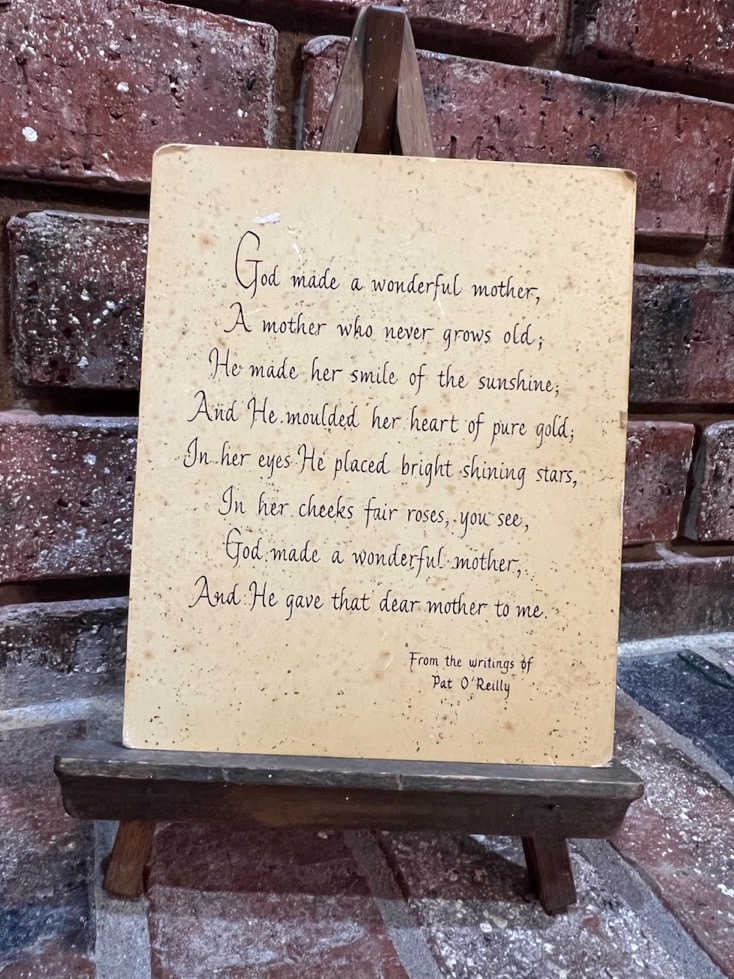 God made a wonderful mother,
A mother who never grows old;
He made her smile of the sunshine,
And He moulded her heart of pure gold;
In her eyes He placed bright shining stars,
In her cheeks fair roses, you see,
God made a wonderful mother,
And He gave that dear mother to me.
From the writings of
Pat O'Reilly